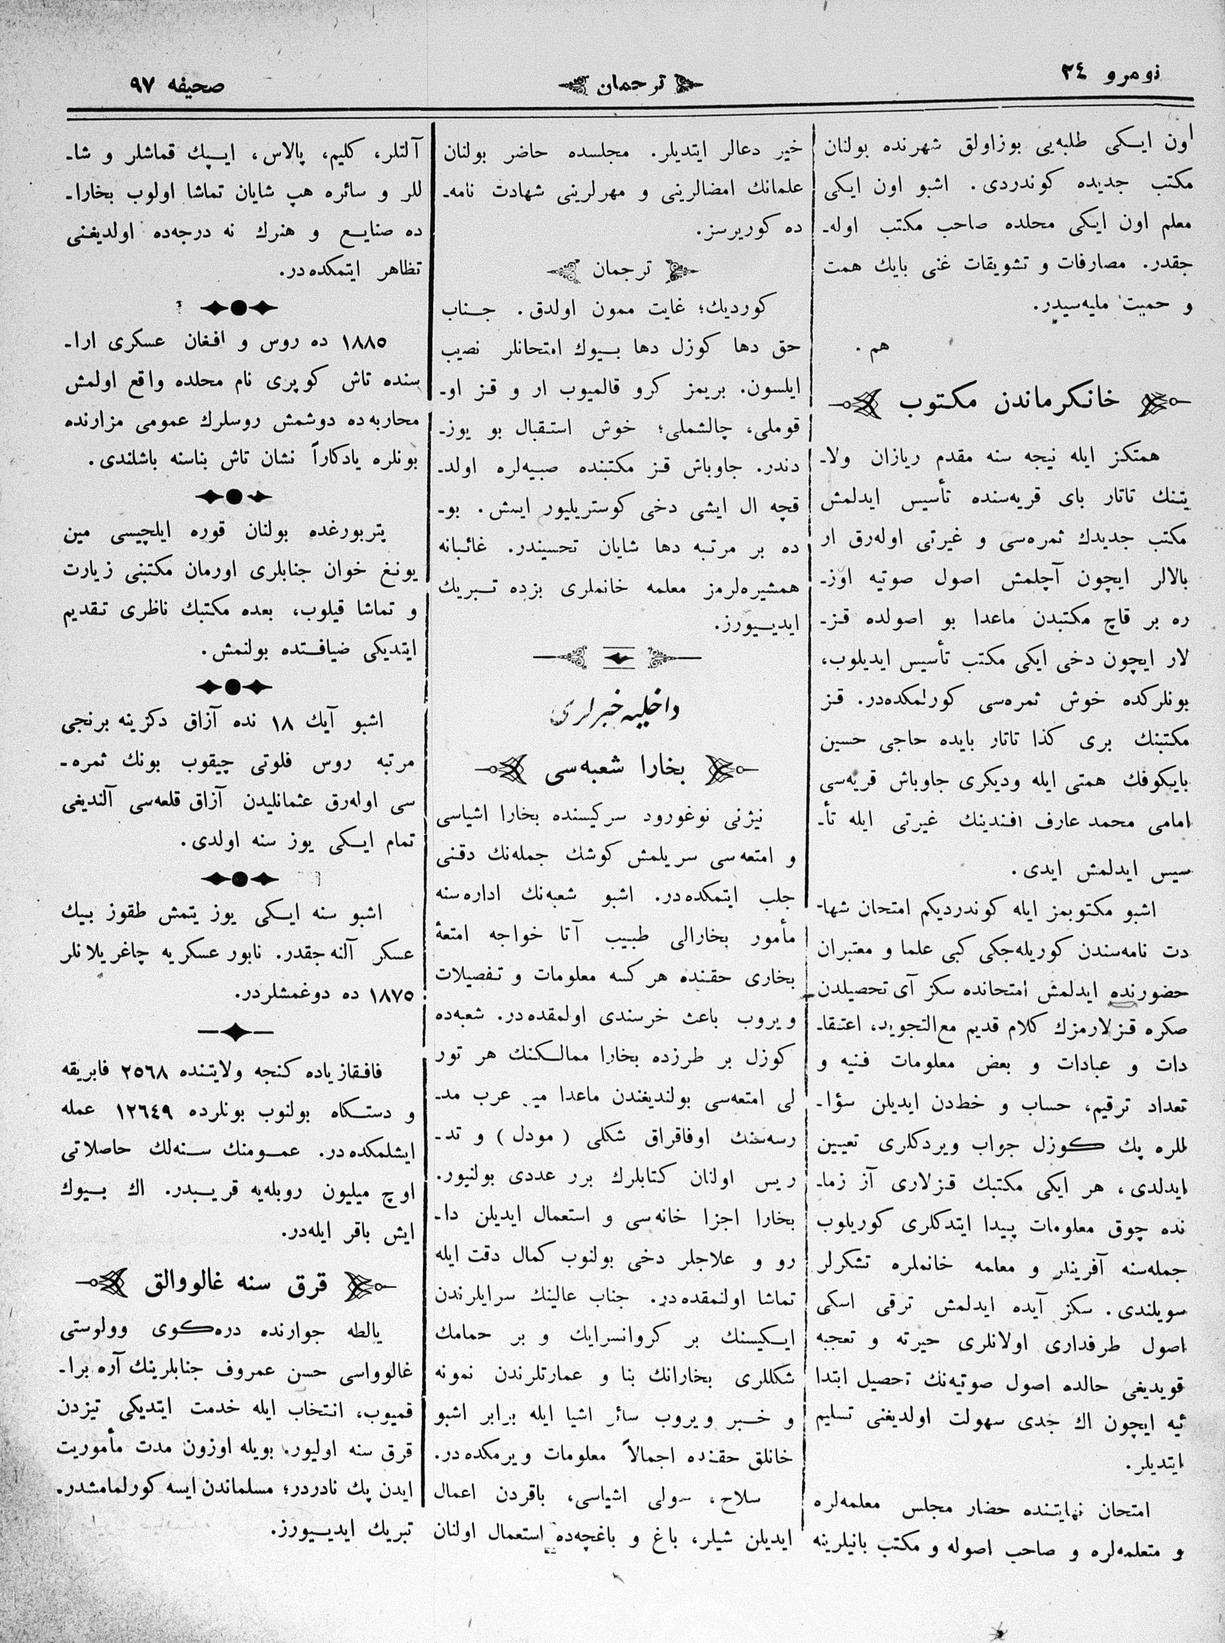 نومرو ٢٤
ترجمان
صحيفه ٩٧
اون ايكی طلبه‌يی بوزاولق شهرنده بولنان
مكتب جديده كوندردی. اشبو اون ايكی
معلم اون ايكی محلده صاحب مكتب اوله‌ـ
جقدر. مصارفات و تشويقات غنی بايك همت
و حميت مليه‌سيدر.
هم.
خانكرماندن مكتوب
همتكز ايله نيجه سنه مقدم ريازان ولاـ
يتنك تاتار بای قريه‌سنده تأسيس ايدلمش
مكتب جديدك ثمره‌سی و غيرتی اوله‌رق ار
بالالر ايچون آچلمش اصول صوتيه اوزـ
ره بر قاچ مكتبدن ماعدا بو اصولده قزـ
لار ايچون دخی ايكی مكتب تأسيس ايديلوب،
بونلركده خوش ثمره‌سی كورلمكده‌در. قز
مكتبنك بری كذا تاتار بايده حاجی حسين
بايكوفك همتی ايله وديكری جاوباش قريه‌سی
امامی محمد عارف افندينك غيرتی ايله تأـ
سيس ايدلمش ايدی.
اشبو مكتوبمز ايله كوندرديكم امتحان شهاـ
دت نامه‌سندن كوريله‌جكی كبی علما و معتبران
حضورنده ايدلمش امتحانده سكز آی تحصيلدن
صكره قزلارمزك كلام قديم مع‌التجويد، اعتقاـ
دات و عبادات و بعض معلومات فنيه و
تعداد ترقيم، حساب و خط‌دن ايديلن سؤاـ
للره پك كوزل جواب ويردكلری تعيين
ايدلدی، هر ايكی مكتبك قزلاری آز زماـ
نده چوق معلومات پيدا ايتدكلری كوريلوب
جمله‌سنه آفرينلر و معلمه خانملره تشكرلر
سويلندی. سكز آيده ايدلمش ترقی اسكی
اصول طرفداری اولانلری حيرته و تعجبه
قويديغی حالده اصول صوتيه‌نك تحصيل ابتدا
ئيه ايچون اك جدی سهولت اولديغنی تسليم
ايتديلر.
امتحان نهايتنده حضار مجلس معلمه‌لره
و متعلمه‌لره و صاحب اصوله و مكتب بانيلرينه
خير دعالر ايتديلر. مجلسده حاضر بولنان
علمانك امضالرينی و مهرلرينی شهادت نامه‌ـ
ده كوريرسز.
ترجمان
كورديك؛ غايت ممون اولدق. جناب
حق دها كوزل دها بيوك امتحانلر نصيب
ايلسون. بريمز كرو قالميوب ار و قز اوـ
قوملی، چالشملی؛ خوش استقبال بو يوزـ
دندر. جاوباش قز مكتبنده صبيه‌لره اولدـ
قچه ال ايشی دخی كوستريليور ايمش. بوـ
ده بر مرتبه دها شايان تحسيندر. غائبانه
همشيره‌لرمز معلمه خانملری بزده تبريك
ايديورز.
داخليه خبرلری
بخارا شعبه‌سی
نيژنی نوغورود سركيسنده بخارا اشياسی
و امتعه‌سی سريلمش كوشك جمله‌نك دقنی
جلب ايتمكده‌در. اشبو شعبه‌نك اداره‌سنه
مأمور بخارالی طبيب آتا خواجه امتعۀ
بخاری حقنده هر كسه معلومات و تفصيلات
ويروب باعث خرسندی اولمقده‌در. شعبه‌ده
كوزل بر طرزده بخارا ممالكنك هر تور
لی امتعه‌سی بولنديغندن ماعدا مير عرب مدـ
رسه‌سنك اوفاقراق شكلی (مودل) و تدـ
ريس اولنان كتابلرك برر عددی بولنيور.
بخارا اجزا خانه‌سی و استعمال ايديلن داـ
رو و علاجلر دخی بولنوب كمال دقت ايله
تماشا اولنمقده‌در. جناب عالينك سرايلرندن
ايكيسنك بر كروانسرايك و بر حمامك
شكللری بخارانك بنا و عمارتلرندن نمونه
و خبر ويروب سائر اشيا ايله برابر اشبو
خانلق حقنده اجمالاً معلومات ويرمكده‌در.
سلاح، سولی اشياسی، باقردن اعمال
ايديلن شيلر، باغ و باغچه‌ده استعمال اولنان
آلتلر، كليم، پالاس، ايپك قماشلر و شاـ
للر و سائره هپ شايان تماشا اولوب بخاراـ
ده صنايع و هنرك نه درجه‌ده اولديغنی
تظاهر ايتمكده‌در.
١٨٨٥ ده روس و افغان عسكری اراـ
سنده تاش كوپری نام محلده واقع اولمش
محاربه‌ده دوشمش روسلرك عمومی مزارنده
بونلره يادكاراً نشان تاش بناسنه باشلندی.
پتربورغده بولنان قوره ايلچيسی مين
يونغ خوان جنابلری اورمان مكتبنی زيارت
و تماشا قيلوب، بعده مكتبك ناظری تقديم
ايتديكی ضيافتده بولنمش.
اشبو آيك ١٨ نده آزاق دكزينه برنجی
مرتبه روس فلوتی چيقوب بونك ثمره‌ـ
سی اوله‌رق عثمانليدن آزاق قلعه‌سی آلنديغی
تمام ايكی يوز سنه اولدی.
اشبو سنه ايكی يوز يتمش طقوز بيك
عسكر آلنه‌جقدر. نابور عسكريه چاغريلانلر
١٨٧٥ ده دوغمشلردر.
قافقازياده كنجه ولايتنده ٢٥٦٨ فابريقه
و دستكاه بولنوب بونلرده ١٢٦٤٩ عمله
ايشلمكده‌در. عمومنك سنه‌لك حاصلاتی
اوچ ميليون روبله‌يه قريبدر. اك بيوك
ايش باقر ايله‌در.
قرق سنه غالووالق
يالطه جوارنده دره‌كوی وولوستی
غالوواسی حسن عمروف جنابلرينك آره براـ
قميوب، انتخاب ايله خدمت ايتديكی تيزدن
قرق سنه اوليور. بويله اوزون مدت مأموريت
ايدن پك نادردر؛ مسلماندن ايسه كورلمامشدر.
تبريك ايديورز.